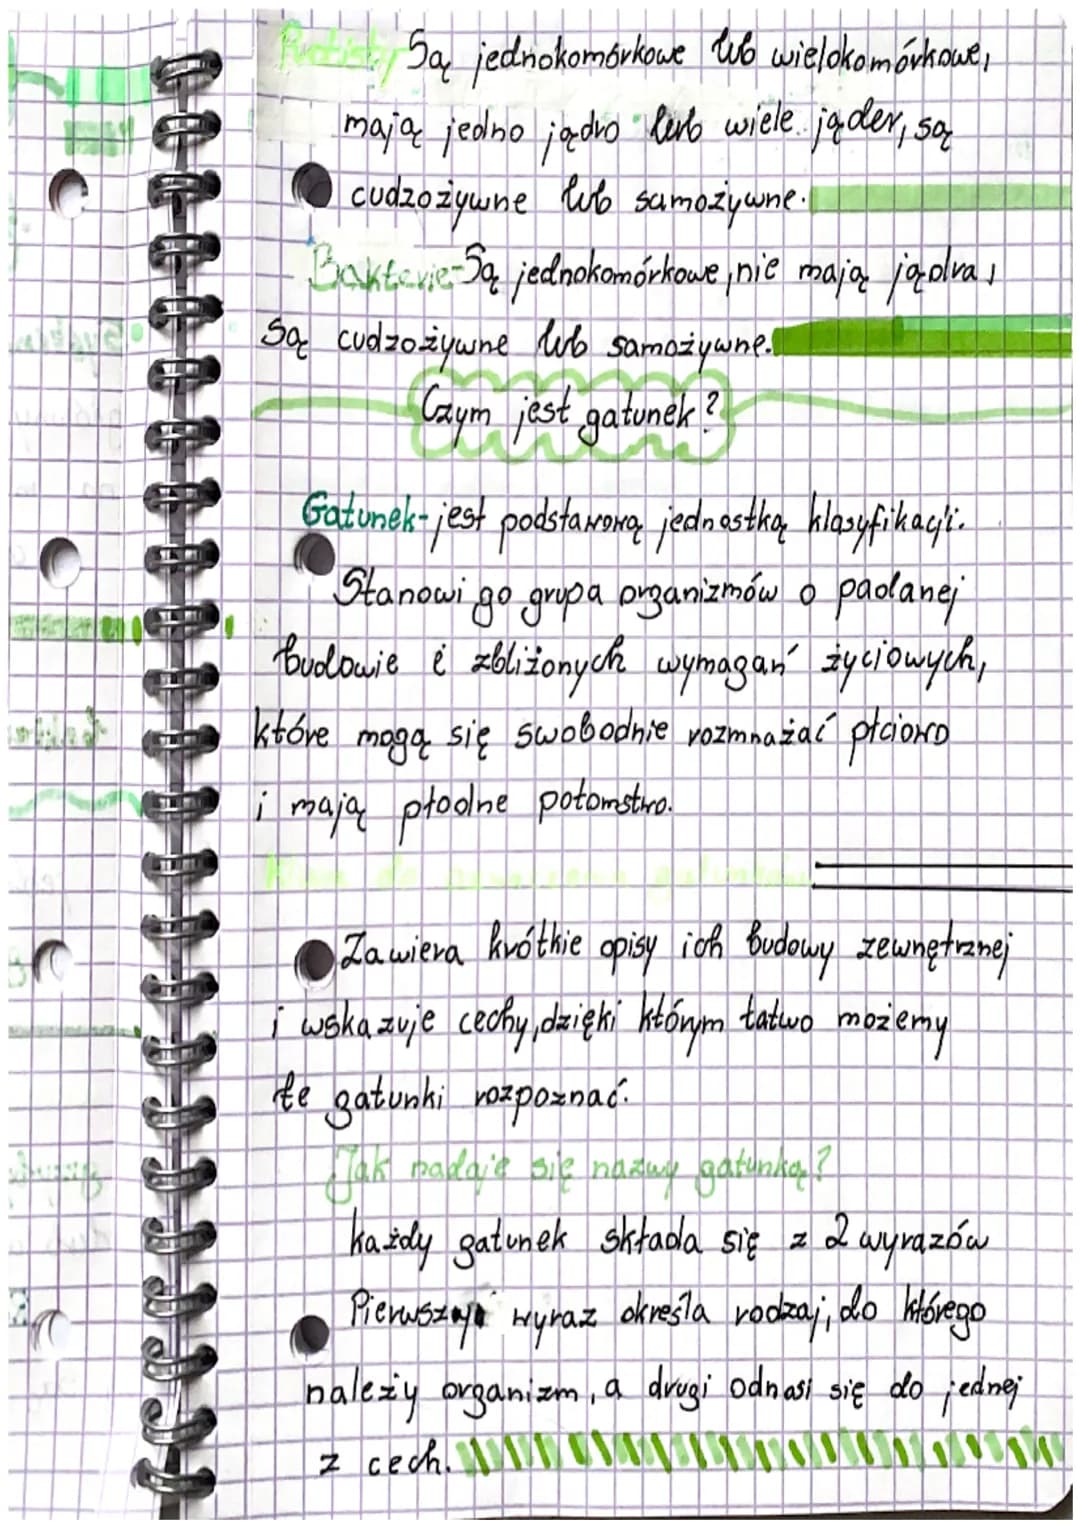 Protisty Są jednokomórkowe lub wielokomórkowe,
mają jedno jądro lub wiele jąder, są
cudzożywne lub samożywne.
Bakterie-Są jednokomórkowe, nie mają jądra,
są cudzożywne lub samożywne.
Czym jest gatunek?
Gatunek-jest podstawową jednostką klasyfikacji.
Stanowi go grupa organizmów o padanej
budowie i zbliżonych wymagań życiowych,
które mogą się swobodnie rozmnażać płciowo
i mają płodne potomstwo.
Klucz do oznaczania gatunków
Zawiera krótkie opisy ich budowy zewnętrznej
i wskazuje cechy, dzięki którym łatwo możemy
te gatunki rozpoznać.
Jak nadaje się nazwy gatunką?
każdy gatunek składa się z 2 wyrazów
Pierwszy wyraz określa rodzaj, do którego
należy organizm, a drugi odnosi się do jednej
z cech.